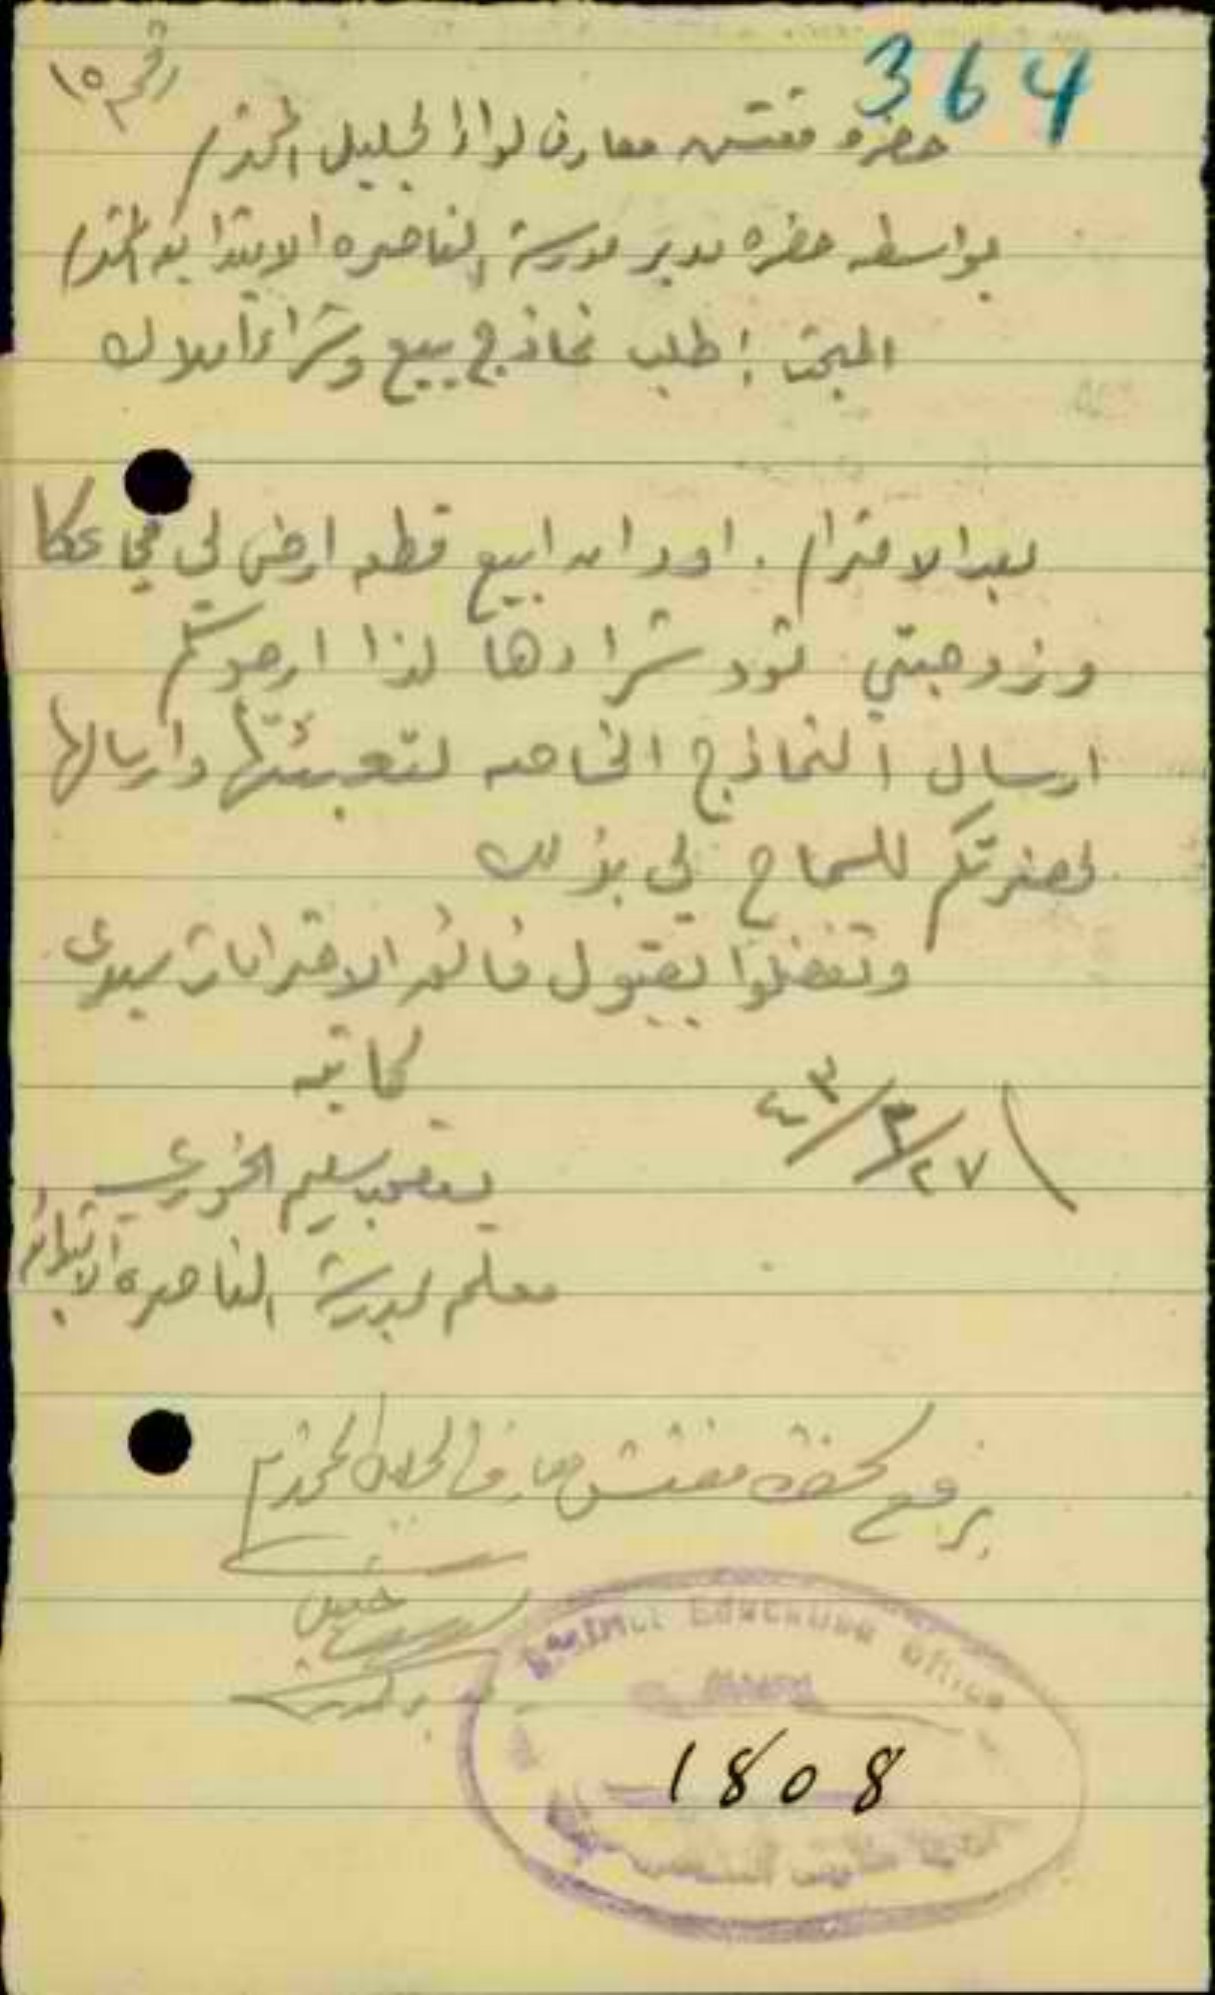 364
رقم ١٥
حضرة مفتش معارف لواء الجليل المحترم
بواسطه حضرة مدير مدرسة الناصره الابتدائيه المحترم
المبحث : طلب نماذج بيع وشراء املاك
بعد الاحترام . اود ان ابيع قطعه ارض لي في عكا
وزوجتي تود شراءها لذا ارجوكم
ارسال النماذج الخاصه لتعبئتها وارسالها
لحضرتكم للسماح لي بذلك
وتفضلوا بقبول فائق الاحترامات سيدي
كاتبه
٤٣/٣/٢٧
يعقوب سليم الخوري
معلم بمدرسة الناصره الابتدائيه
يرفع لحضرة مفتش معارف الجليل المحترم
District Education Office
1808